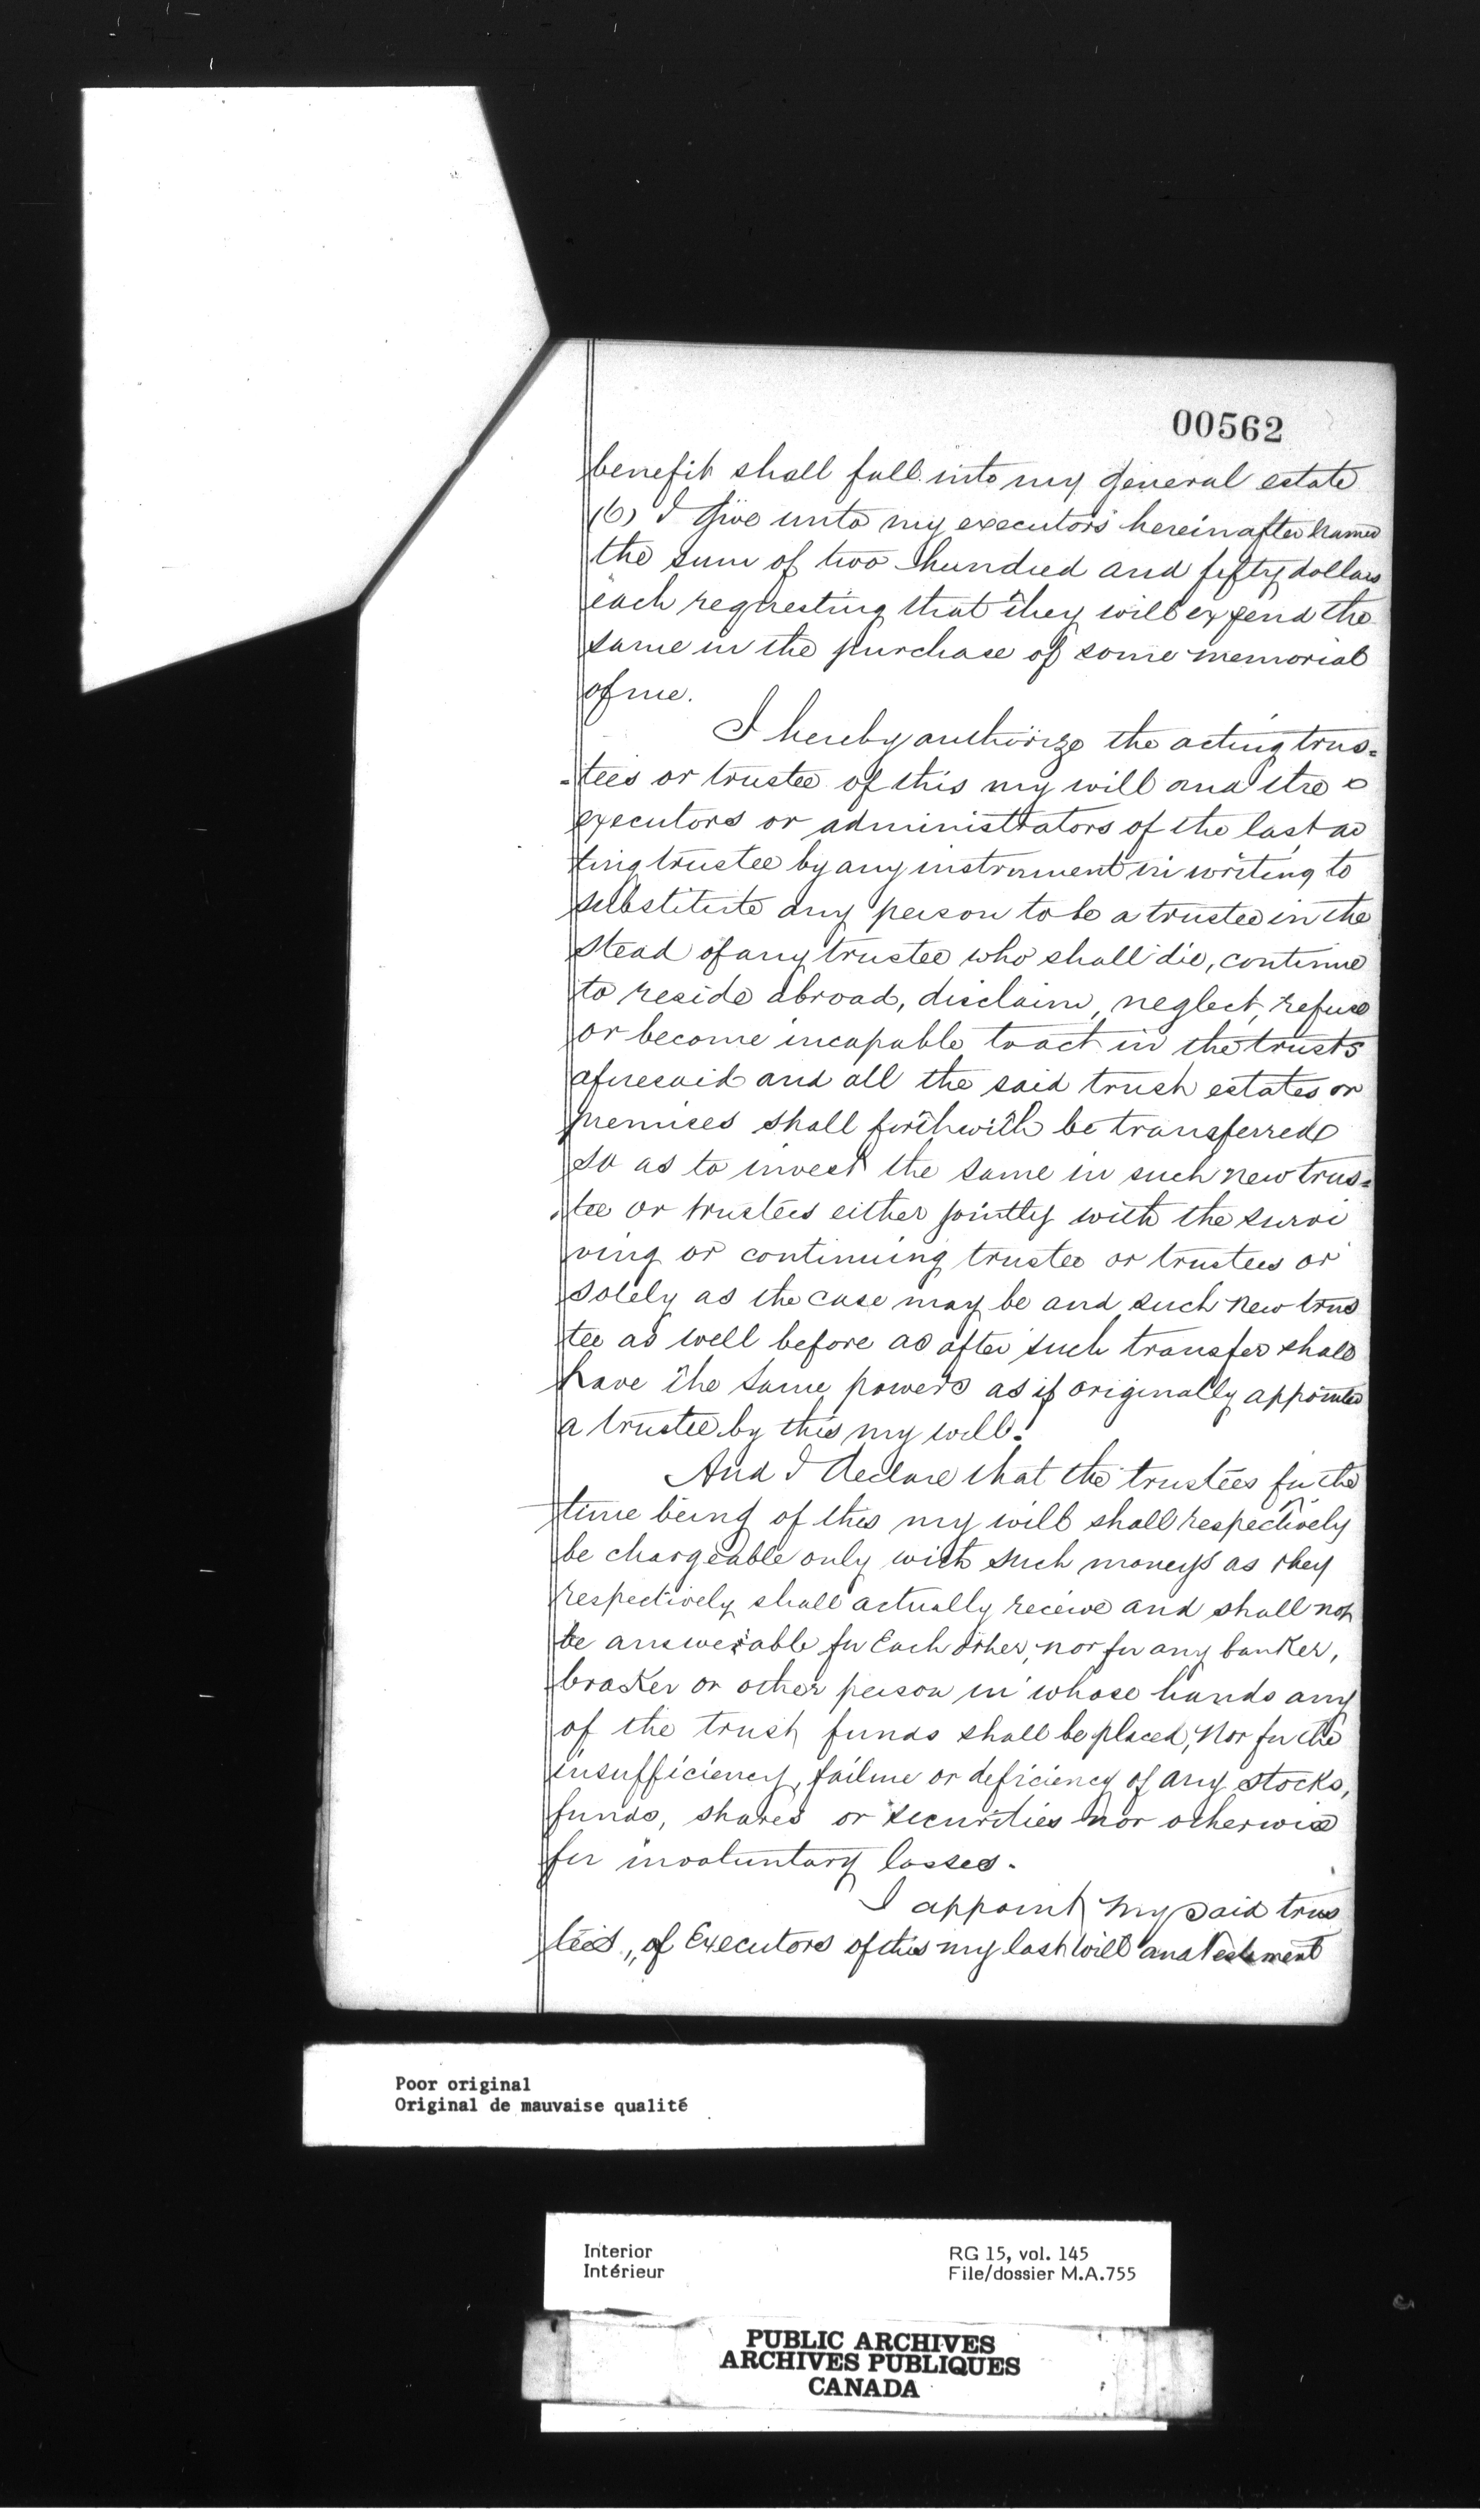 00562
benefit shall fall into my general estate
(6) I give unto my executors hereinafter named
the sum of two hundred and fifty dollars
each requesting that they will expend the
same in the purchase of some memorial
of me.
I hereby authorize the acting trus=
=tees or trustee of this my will and the
executors or administrators of the last ac
ting trustee by any instrument in writing to
substitute any person to be a trustee in the
stead of any trustee who shall die, continue
to reside abroad, disclaim, neglect, refuse
or become incapable to act in the trusts
aforesaid and all the said trust estates or
premises shall forthwith be transferred
so as to invest the same in such new trus=
tee or trustees either jointly with the survi
ving or continuing trustee or trustees or
solely as the case may be and such new trus
tee as well before as after such transfer shall
have the same powers as if originally appointed
a trustee by this my will.
And I declare that the trustees for the
time being of this my will shall respectively
be chargeable only with such moneys as they
respectively shall actually receive and shall not
be answerable for each other, nor for any banker,
broker or other person in whose hands any
of the trust funds shall be placed, nor for the
insufficiency, failure or deficiency of any stocks,
funds, shares or securities nor otherwise
for involuntary losses.
I appoint my said trus
tees, of Executors of this my last will and testament
Poor original
Original de mauvaise qualité
Interior RG 15, vol. 145
Intérieur File/dossier M.A.755
PUBLIC ARCHIVES
ARCHIVES PUBLIQUES
CANADA